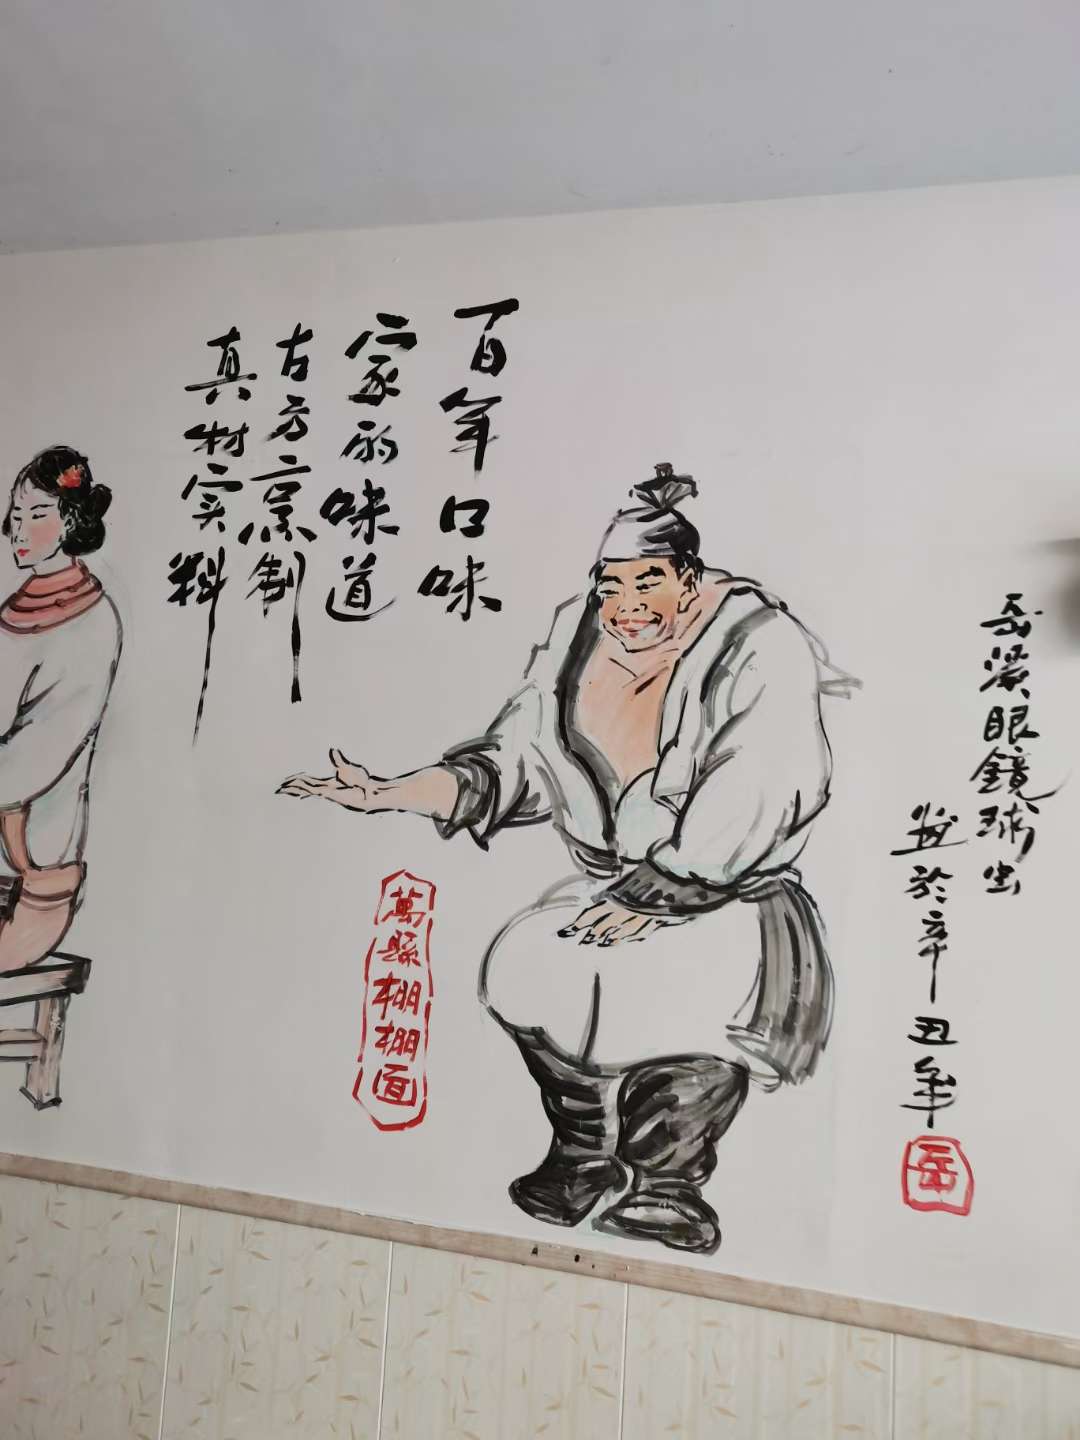 百年口味
家的味道
古方烹制
真材实料
萬縣棚棚面
岳溪眼鏡球出
於辛丑年
岳